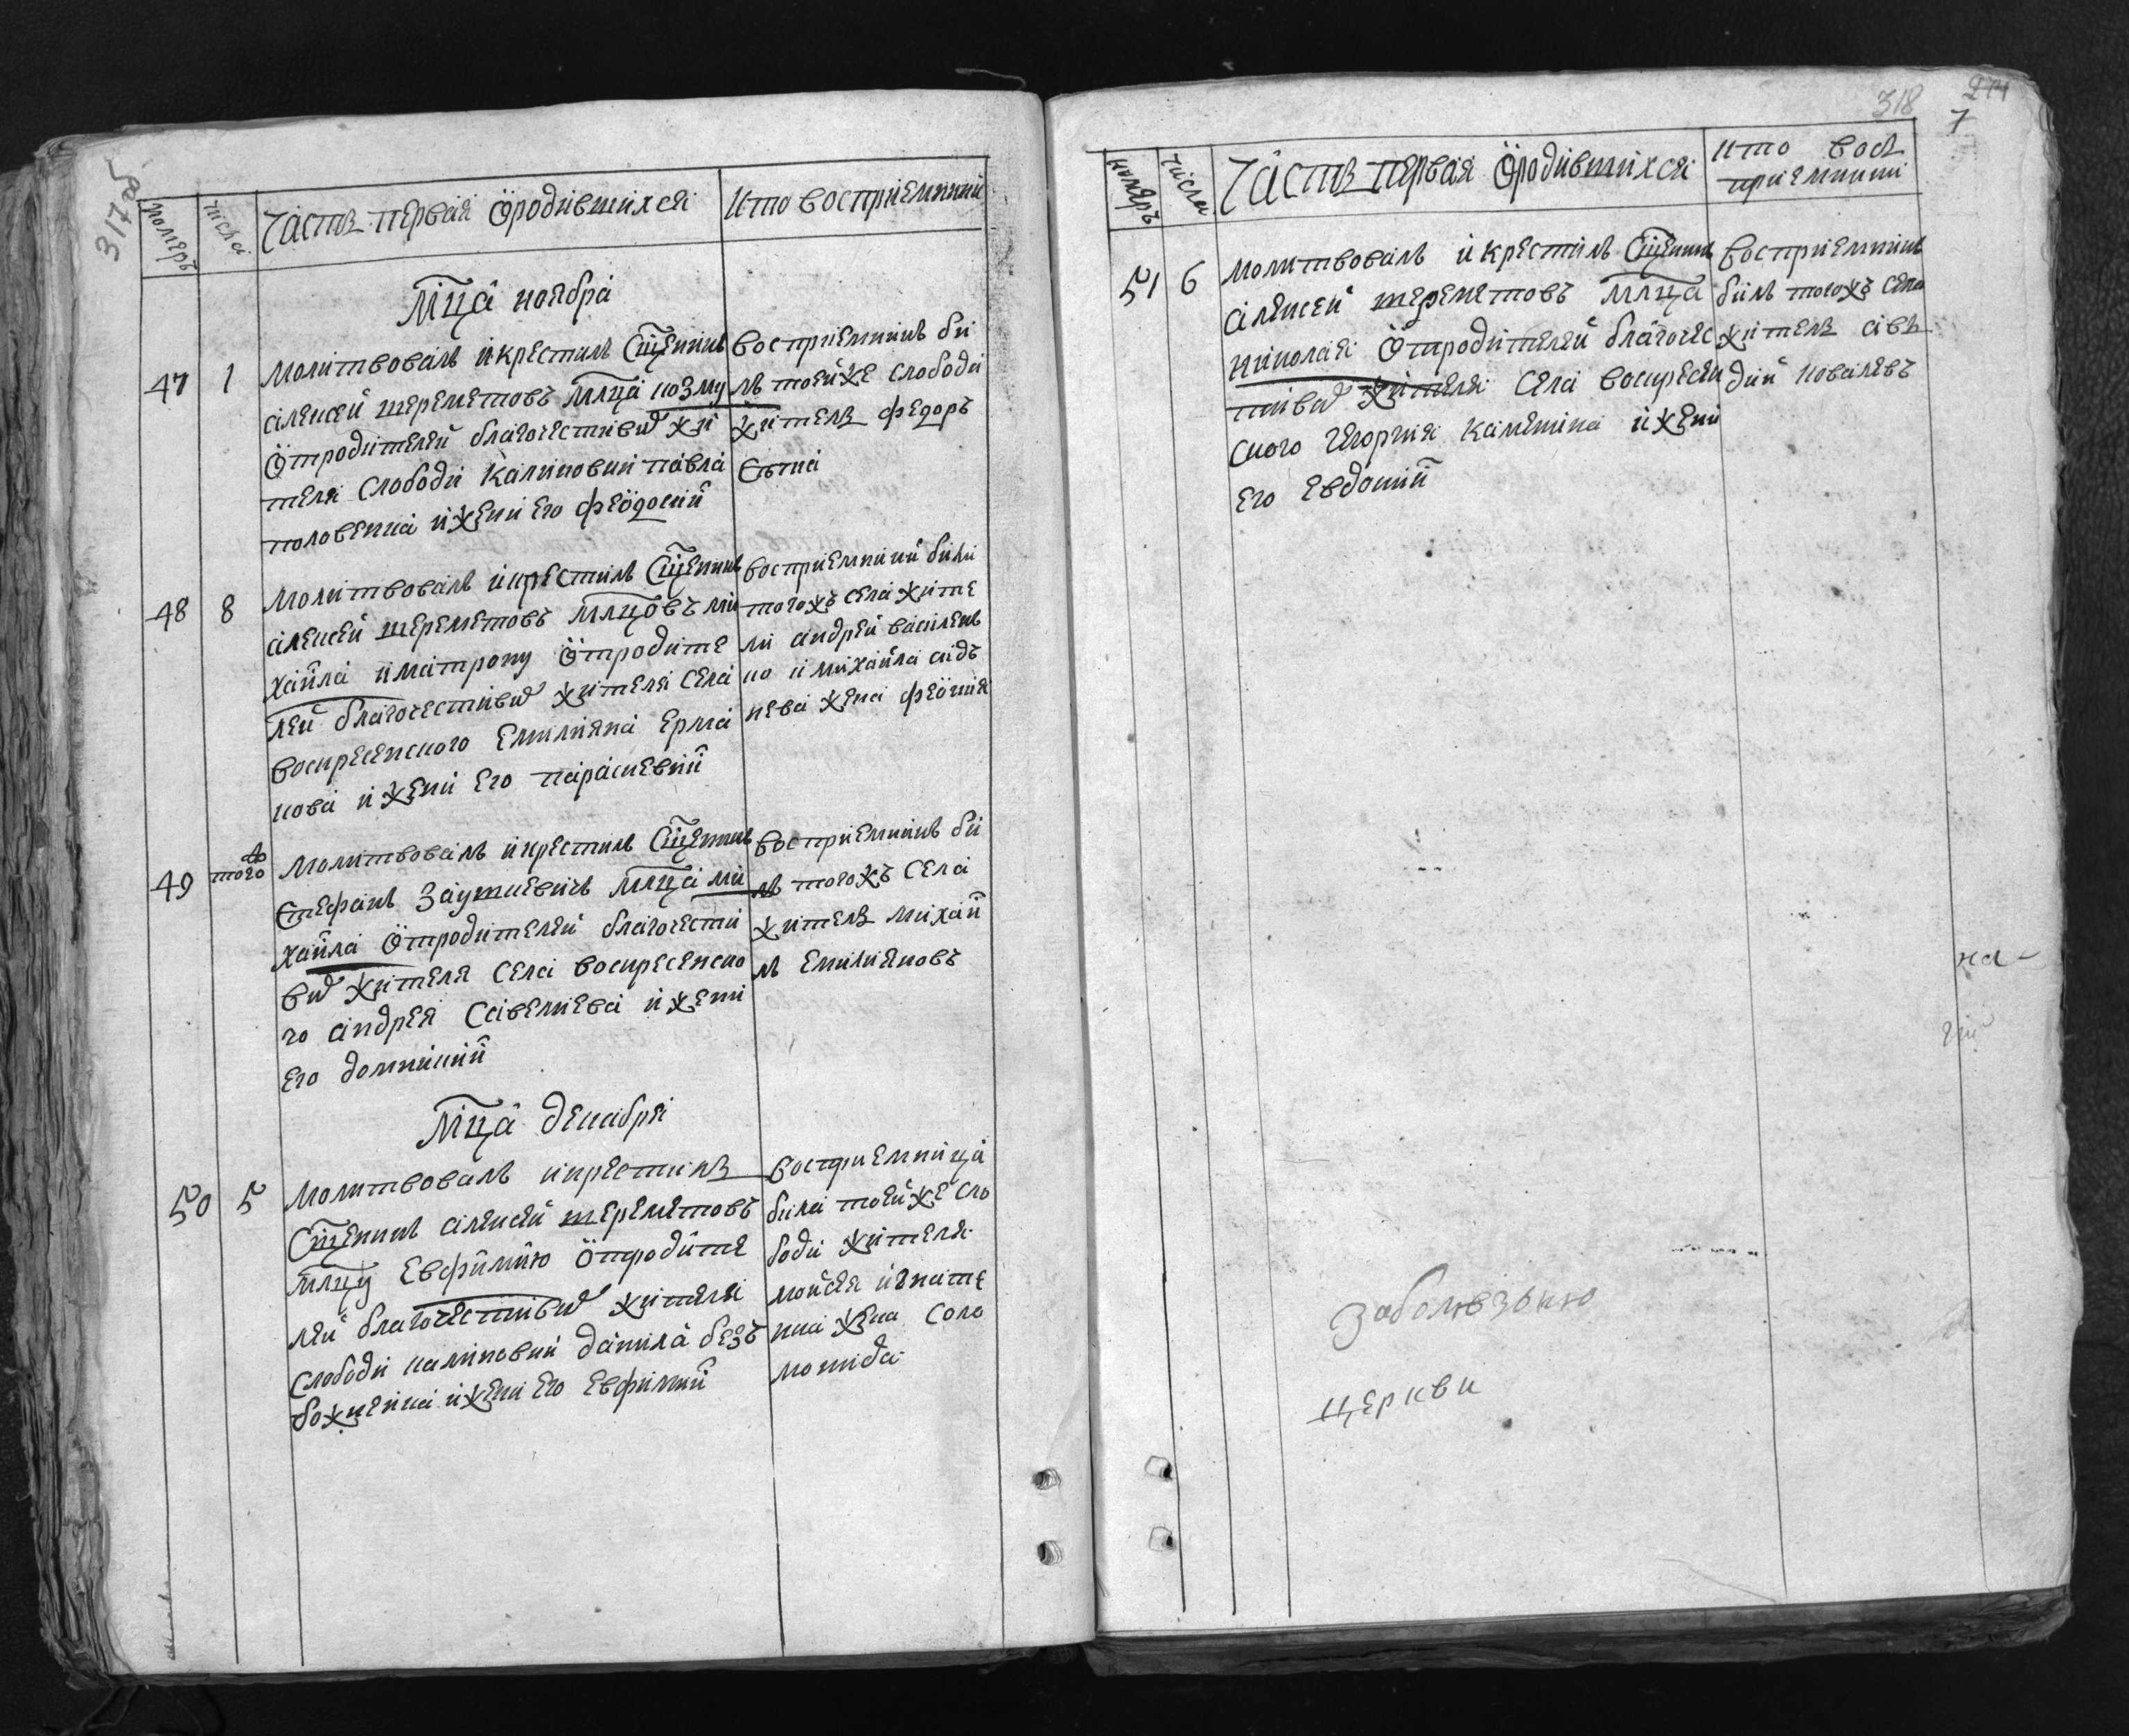 317об
номеръ
числа
Часть первая ѿродившихся
кто восприемники
Мца ноября
47
1
молитвовалъ икрестилъ Сщенникъ
алексей шереметовъ млнца козму
ѿтродителей благочестивыхъ жи
теля слободи Калиновки павла
половенка ижени его феѡдосии
восприемникъ би
лъ тоейже слободи
житель федоръ
48
8
молитвовалъ икрестилъ Сщенникъ
алексей шереметовъ млнцовъ ми
хаила иматрону ѿтродите
лей благочестивыхъ жителя села
воскресенского емилияна ерма
кова ижени его параскевии
восприемники били
тогожъ села жите
ли андрей василенъ
ко имихаила сидъ
нева жена феѡния
49
того
молитвовалъ икрестилъ Сщенникъ
Стефанъ Заушкевичъ млнца ми
хаила ѿтродителей благочести
выхъ жителя села воскресенско
го андрея Савелиева ижени
его домникии
восприемникъ би
лъ тогожъ села
житель михаи
лъ емилияновъ
Мца декабря
50
5
молитвовалъ икрестилъ
Сщенникъ алексей шереметовъ
млнцу евфимию ѿтродите
лей благочестивыхъ жителя
слободи калиновки данила безъ
божненка ижени его евфимии
восприемница
била тоейже сло
боди жителя
мойсея игнате
нка жена соло
монида
318
7
номеръ
числа
Часть первая ѿродившихся
кто вос
приемники
51
6
молитвовалъ икрестилъ Сщенникъ
алексей шереметовъ млнца
николая ѿтродителей благочес
тивыхъ жителя села воскресен
ского георгия каленика ижени
его евдокии
восприемникъ
билъ тогожъ села
житель авъ
дий ковалевъ
на-
заболѣзьню
церкви